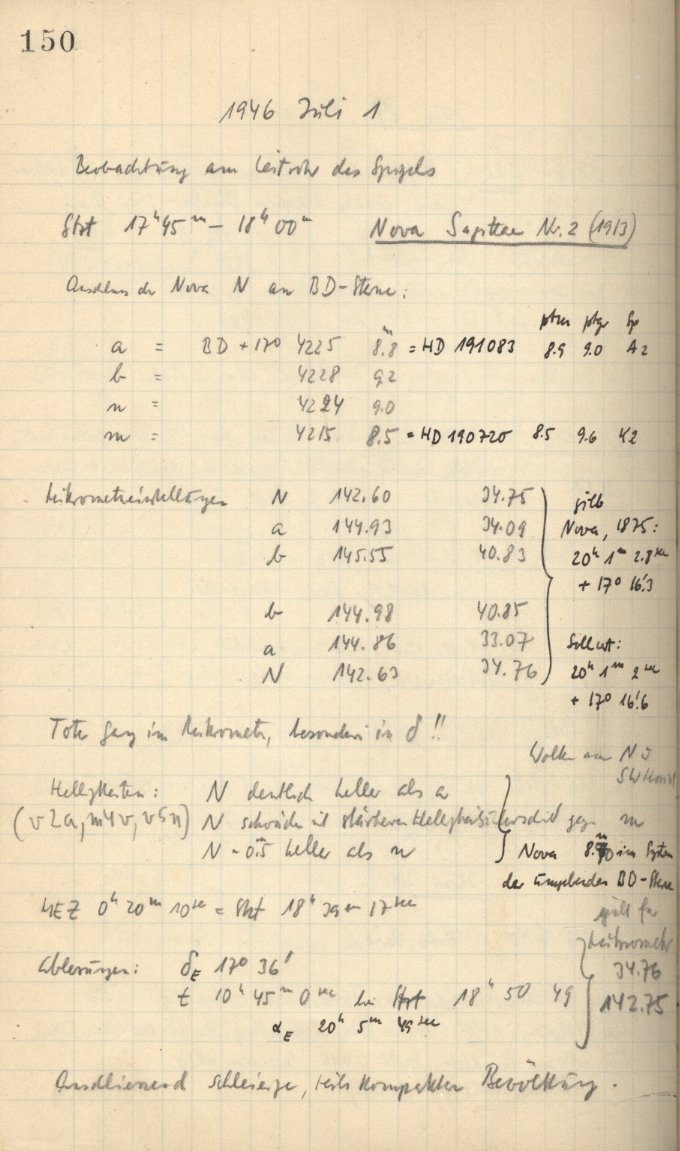 150
1946 Juli 1
Beobachtung am Leitrohr des Spiegels
Stzt 17h 45m – 18h 00m Nova Sagittae Nr. 2 (1913)
Anschluss der Nova N an BD-Sterne:
ptm ptgr Sp
a = BD + 17° 4225 8.m8 = HD 191083 8.9 9.0 A2
b = 4228 9.2
n = 4224 9.0
m = 4215 8.5 = HD 190720 8.5 9.6 K2
Mikrometereinstellungen N 142.60 34.75
a 144.93 34.09
b 145.55 40.83
b 144.98 40.85
a 144.86 33.07
N 142.63 34.76
gilb
Nova, 1875:
20h 1m 2.8sec
+ 17° 16.'3
Sollwt:
20h 1m 2sec
+ 17° 16.'6
Toter Gang im Mikrometer, besonders in δ!!
Wolken am N u
SW Horizt
Helligkeiten: N deutlich heller als a
(v2a, m4v, v5n) N schwächer mit stärkerem Helligkeitsunterschied gegen m
N ~ 0.m5 heller als n
Nova 8.m70 im System
der umgebenden BD-Sterne
MEZ 0h 20m 10sec = Stzt 18h 39m 17sec
gilt für
Mikrometer
34.76
142.75
Ablesungen: δE 17° 36'
t 10h 45m 0sec bei Stzt 18h 50 49
αE 20h 5m 49sec
Anschliessend schleierige, teils kompakten Bewölkung.